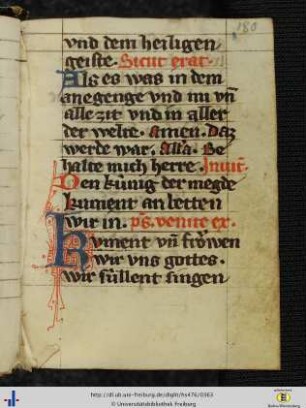 180
vnd dem heiligen
geiste. Sicut erat.
Als es was in dem
anegenge vnd nu vñ
alle zit vnd in aller
der welte. Amen. Daz
werde war. Alla. Be
halte mich herre. Inuit.
Den künig der megde
kument an betten
wir in. ps. venite ex.
Kument vñ fröwen
wir vns gottes.
wir süllent singen
http://dl.ub.uni-freiburg.de/diglit/hs476/0363
© Universitätsbibliothek Freiburg